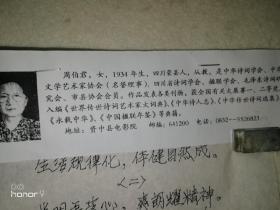 周伯君，女，1934年生，四川荣县人，从教。是中华诗词学会、中
文学艺术家协会（名誉理事）、四川省诗词学会、楹联学会、毛泽东诗词研
究会、市县协会会员。作品发表各类刊物，获全国有关大展赛一、二等奖，
入编《世界传世诗词艺术家大典》、《中华诗人志》、《中华当代诗词
《永载中华》、《中国楹联年鉴》等典籍。
地址：资中县电影院 邮编：641200 电话：0832—5526823
生活规律化，保健自然成。
〈二〉
心，
精神。
HONOR